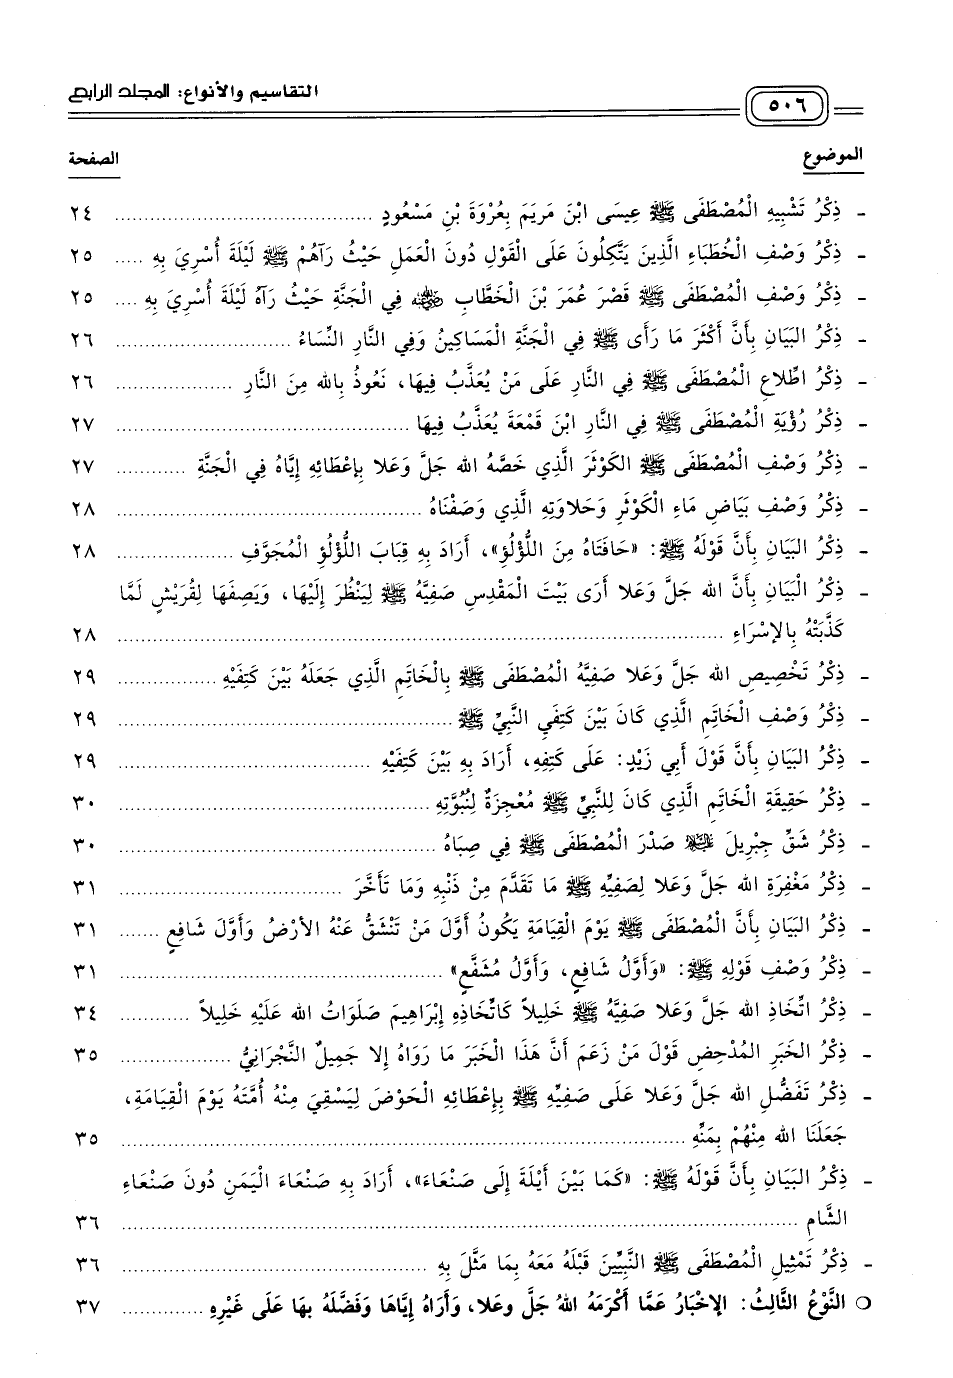 ٥٠٦ التقاسيم والأنواع: المجلد الرابع
الموضوع الصفحة
- ذِكْرُ تَشْبِيهِ الْمُصْطَفَى ﷺ عِيسَى ابْنَ مَرْيَمَ بِعُرْوَةَ بْنِ مَسْعُودٍ ........ ٢٤
- ذِكْرُ وَصْفِ الْخُطَبَاءِ الَّذِينَ يَتَّكِلُونَ عَلَى الْقَوْلِ دُونَ الْعَمَلِ حَيْثُ رَآهُمْ ﷺ لَيْلَةَ أُسْرِيَ بِهِ ..... ٢٥
- ذِكْرُ وَصْفِ الْمُصْطَفَى ﷺ قَصْرَ عُمَرَ بْنَ الْخَطَّابِ رضي الله عنه فِي الْجَنَّةِ حَيْثُ رَآهُ لَيْلَةَ أُسْرِيَ بِهِ .... ٢٥
- ذِكْرُ البَيَانِ بِأَنَّ أَكْثَرَ مَا رَأَى ﷺ فِي الْجَنَّةِ الْمَسَاكِينُ وَفِي النَّارِ النِّسَاءُ ........ ٢٦
- ذِكْرُ اطِّلَاعِ الْمُصْطَفَى ﷺ فِي النَّارِ عَلَى مَنْ يُعَذَّبُ فِيهَا، نَعُوذُ بِالله مِنَ النَّارِ ........ ٢٦
- ذِكْرُ رُؤْيَةِ الْمُصْطَفَى ﷺ فِي النَّارِ ابْنَ قَمْعَةَ يُعَذَّبُ فِيهَا ........ ٢٧
- ذِكْرُ وَصْفِ الْمُصْطَفَى ﷺ الكَوْثَرَ الَّذِي خَصَّهُ الله جَلَّ وَعَلا بِإعْطَائِهِ إِيَّاهُ فِي الْجَنَّةِ ........ ٢٧
- ذِكْرُ وَصْفِ بَيَاضِ مَاءِ الْكَوْثَرِ وَحَلاوَتِهِ الَّذِي وَصَفْنَاهُ ........ ٢٨
- ذِكْرُ البَيَانِ بِأَنَّ قَوْلَهُ ﷺ: «حَافَتَاهُ مِنَ اللُّؤْلُؤِ»، أَرَادَ بِهِ قِبَابَ اللُّؤْلُؤِ الْمُجَوَّفِ ........ ٢٨
- ذِكْرُ الْبَيَانِ بِأَنَّ الله جَلَّ وَعَلا أرَى بَيْتَ الْمَقْدِسِ صَفِيَّهُ ﷺ لِيَنْظُرَ إِلَيْهَا، وَيَصِفَهَا لِقُرَيْشٍ لَمَّا
كَذَّبَتْهُ بِالإسْرَاءِ ........ ٢٨
- ذِكْرُ تَخْصِيصِ الله جَلَّ وَعَلا صَفِيَّهُ الْمُصْطَفَى ﷺ بِالْخَاتِمِ الَّذِي جَعَلَهُ بَيْنَ كَتِفَيْهِ ........ ٢٩
- ذِكْرُ وَصْفِ الْخَاتِمِ الَّذِي كَانَ بَيْنَ كَتِفَيِ النَّبِيِّ ﷺ ........ ٢٩
- ذِكْرُ البَيَانِ بِأَنَّ قَوْلَ أَبِي زَيْدٍ: عَلَى كَتِفِهِ، أَرَادَ بِهِ بَيْنَ كَتِفَيْهِ ........ ٢٩
- ذِكْرُ حَقِيقَةِ الْخَاتِمِ الَّذِي كَانَ لِلنَّبِيِّ ﷺ مُعْجِزَةً لِنُبُوَّتِهِ ........ ٣٠
- ذِكْرُ شَقِّ جِبْرِيلَ عليه السلام صَدْرَ الْمُصْطَفَى ﷺ فِي صِبَاهُ ........ ٣٠
- ذِكْرُ مَغْفِرَةِ الله جَلَّ وَعَلا لِصَفِيِّهِ ﷺ مَا تَقَدَّمَ مِنْ ذَنْبِهِ وَمَا تَأَخَّرَ ........ ٣١
- ذِكْرُ البَيَانِ بِأَنَّ الْمُصْطَفَى ﷺ يَوْمَ الْقِيَامَةِ يَكُونُ أَوَّلَ مَنْ تَنْشَقُّ عَنْهُ الأَرْضُ وَأَوَّلَ شَافِعٍ ....... ٣١
- ذِكْرُ وَصْفِ قَوْلِهِ ﷺ: «وَأَوَّلُ شَافِعٍ، وَأَوَّلُ مُشَفَّعٍ» ........ ٣١
- ذِكْرُ اتِّخَاذِ الله جَلَّ وَعَلا صَفِيَّهُ ﷺ خَلِيلاً كَاتِّخَاذِهِ إِبْرَاهِيمَ صَلَوَاتُ الله عَلَيْهِ خَلِيلاً ........ ٣٤
- ذِكْرُ الخَبَرِ المُدْحِضِ قَوْلَ مَنْ زَعَمَ أَنَّ هَذَا الْخَبَرَ مَا رَوَاهُ إلا جَمِيلٌ النَّجْرَانِيُّ ........ ٣٥
- ذِكْرُ تَفَضُّلِ الله جَلَّ وَعَلا عَلَى صَفِيِّهِ ﷺ بِإِعْطَائِهِ الْحَوْضَ لِيَسْقِيَ مِنْهُ أُمَّتَهُ يَوْمَ الْقِيَامَةِ،
جَعَلَنَا الله مِنْهُمْ بِمَنِّهِ ........ ٣٥
- ذِكْرُ البَيَانِ بِأَنَّ قَوْلَهُ ﷺ: «كَمَا بَيْنَ أَيْلَةَ إِلَى صَنْعَاءَ»، أَرَادَ بِهِ صَنْعَاءَ الْيَمَنِ دُونَ صَنْعَاءِ
الشَّامِ ........ ٣٦
- ذِكْرُ تَمْثِيلِ الْمُصْطَفَى ﷺ النَّبِيِّينَ قَبْلَهُ مَعَهُ بِمَا مَثَّلَ بِهِ ........ ٣٦
○ النَّوْعُ الثَّالِثُ: الإخْبَارُ عَمَّا أَكْرَمَهُ اللهُ جَلَّ وعَلا، وَأَرَاهُ إِيَّاهَا وَفَضَّلَهُ بِهَا عَلَى غَيْرِهِ ........ ٣٧